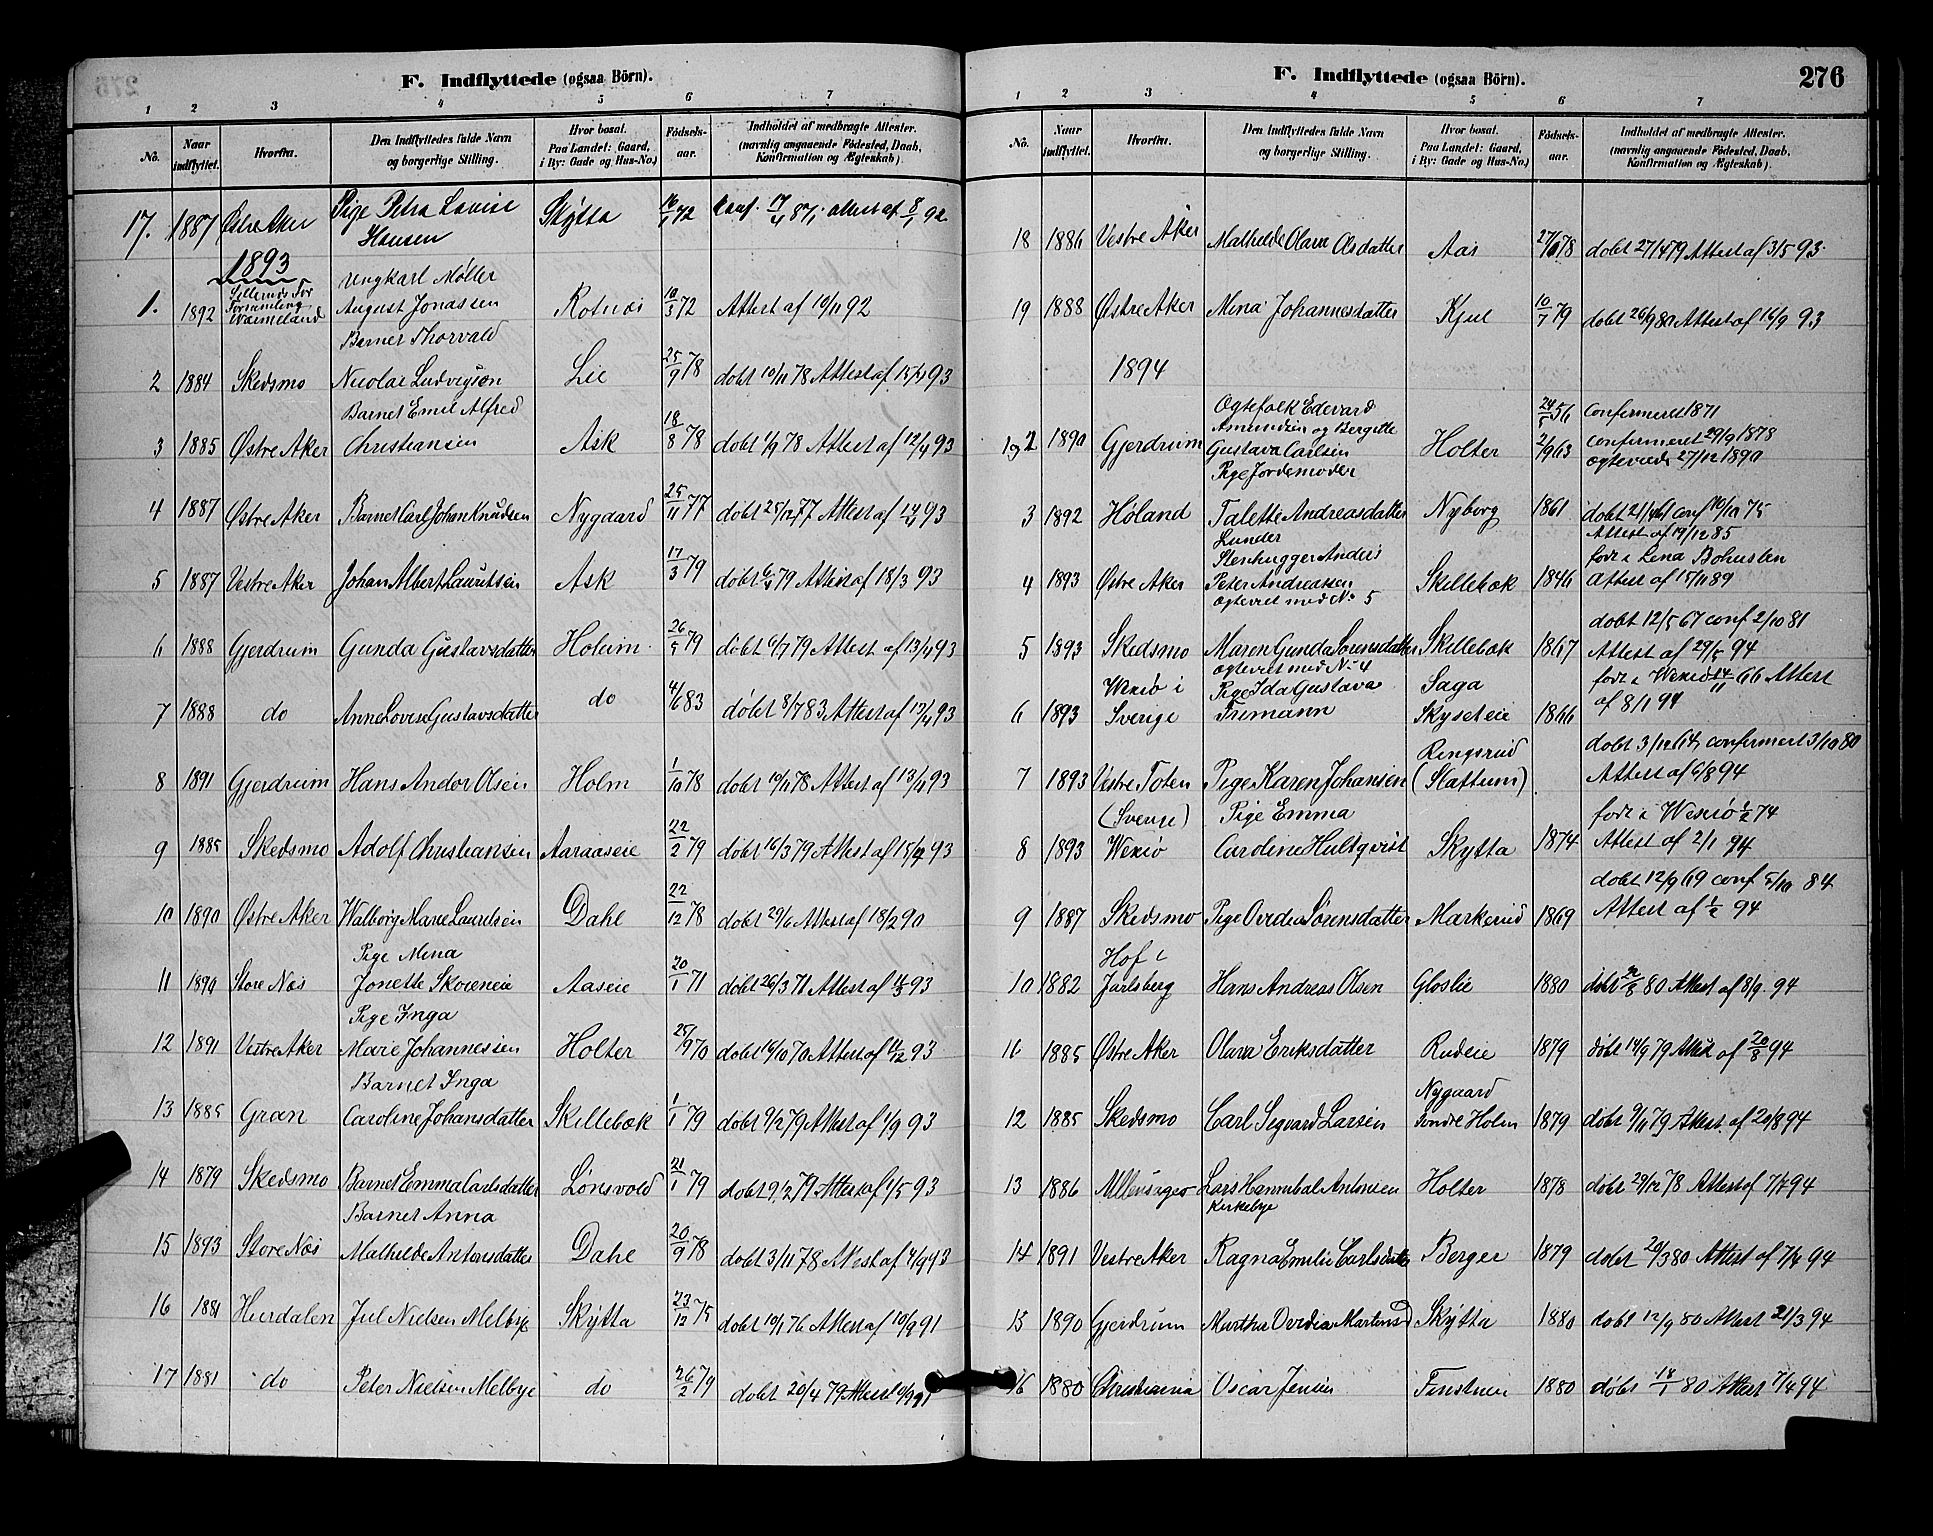 F. Indflyttede (ogsaa Börn).
1 2 3 4 5 6 7
No. Naar indflyttet. Hvorfra. Den Indflyttedes fulde Navn og borgerlige Stilling. Hvor bosat. Paa Landet: Gaard, i By: Gade og Hus-No.) Fødsels-aar. Indholdet af medbragte Attester. (navnlig angaaende Fødested, Daab, Konfirmation og Ægteskab).
17. 1887 Østre Aker Pige Petra Lovise Skÿtta 16/1 72 Conf. 17/4 87. attest af 8/1 92
Hansen
1893
Ungkarl Møller
1. 1892 Värmeland August Jonassen Rotnæs 10/3 72 Attest af 10/11 92
Barnet Thorvald
2 1884 Skedsmo Nicolai Ludvigsen Lie 25/9 78 døbt 10/11 78 Attest af 15/4 93
Barnet Emil Alfred
3 1885 Østre Aker Christiansen Ask 18/8 78 døbt 1/9 78 Attest af 12/4 93
4 1887 Østre Aker Barnet Carl Johan Knudsen Nygaard 25/11 77 døbt 25/12 77 Attest af 14/4 93
5 1887 Vestre Aker Johan Albert Lauritsen Ask 17/3 79 døbt 6/4 79 Attest af 18/3 93
6 1888 Gjerdrum Gunda Gustavsdatter Holum 26/5 79 døbt 6/7 79 Attest af 13/4 93
7 1888 do Anne Lovise Gustavsdatter do 4/6 83 døbt 8/7 83 Attest af 12/4 93
8 1891 Gjerdrum Hans Andor Olsen Holm 1/10 78 døbt 10/11 78 Attest af 13/4 93
9 1885 Skedsmo Adolf Christiansen Aaraaseie 22/2 79 døbt 16/3 79 Attest af 15/4 93
10 1890 Østre Aker Walborg Marie Lauritsen Dahl 22/12 78 døbt 29/6 Attest af 18/2 90
Pige Mina
11 1890 Store Næs Jonette Skoieneie Aaseie 20/1 71 døbt 26/3 71 Attest af 4/3 93
Pige Inga
12 1891 Vestre Aker Marie Johannesen Holter 25/9 70 døbt 16/10 70 Attest af 4/12 93
Barnet Inga
13 1885 Gran Caroline Johansdatter Skillebæk 1/1 79 døbt 9/2 79 Attest af 1/9 93
14 1879 Skedsmo Barnet Emma Carlsdatter Lønsvold 21/1 79 døbt 9/2 79 Attest af 1/5 93
Barnet Anna
15 1893 Store Næs Mathilde Antonsdatter Dahl 20/9 78 døbt 3/11 78 Attest af 4/9 93
16 1881 Hurdalen Jul Nielsen Melbye Skÿtta 23/12 75 døbt 10/1 76 Attest af 10/9 91
17 1881 do Peter Nielsen Melbye do 26/2 79 døbt 20/4 79 Attest 10/9 91
F. Indflyttede (ogsaa Börn). 276
1 2 3 4 5 6 7
No. Naar indflyttet. Hvorfra. Den Indflyttedes fulde Navn og borgerlige Stilling. Hvor bosat. Paa Landet: Gaard, i By: Gade og Hus-No.) Fødsels-aar. Indholdet af medbragte Attester. (navnlig angaaende Fødested, Daab, Konfirmation og Ægteskab).
18 1886 Vestre Aker Mathilde Olava Olsdatter Aas 78 døbt 27/4 79 Attest af 3/5 93
19 1888 Østre Aker Mina Johannesdatter Kjul 10/7 79 døbt 26/9 80 Attest af 16/9 93
1894
Ogtefolk Edevard 24/5 56 confirmeret 1871
Amundsen og Bergitte
1 og 2 1890 Gjerdrum Gustava Carlsen Holter 2/9 63 confirmeret 29/9 1878
ogteviede 27/12 1890
Pige Jordemoder
3 1892 Høland Talette Andreasdatter Nyborg 1861 døbt 21/4 61 conf 10/10 75
Lunder Attest af 19/12 85
Stenhugger Anders født i Lena Bohuslen
4 1893 Østre Aker Peter Andreassen Skillebæk 1846 Attest af 15/11 89
ogteviet med No 5
døbt 12/5 67 conf 2/10 81
5 1893 Skedsmo Maren Gunda Sorensdatter Skillebæk 1867 Attest af 29/5 94
ogteviet med No 4
Wexiø i Pige Ida Gustava Saga født i Wexiø 14/11 66 Attest
6 1893 Sverige Fremann Skyseteie 1866 af 8/1 94
Ringsrud døbt 3/12 64 confirmert 3/10 80
7 1893 Vestre Toten Pige Karen Johansen (Slattum) Attest af 6/8 94
(Sverige) Pige Emma født i Wexiø 74
8 1893 Wexiø Caroline Hultqvist Skytta 1874 Attest af 2/1 94
døbt 12/9 69 conf 5/10 84
9 1887 Skedsmo Pige Ovidia Sørensdatter Markerud 1869 Attest af 1/2 94
Hof i
10 1882 Jarlsberg Hans Andreas Olsen Gloslie 1880 døbt 80 Attest af 8/9 94
11 1885 Østre Aker Olava Eriksdatter Rudeie 1879 døbt 14/9 79 Attest af 20/8 94
Nygaard
12 1885 Skedsmo Carl Segvard Larsen Søndre Holm 1879 døbt 9/11 79 Attest af 20/8 94
13 1886 Ullensager Lars Hannibal Antonsen Holter 1878 døbt 29/12 78 Attest af 7/4 94
Kirkebye
14 1891 Vestre Aker Ragna Emilie Carlsdatter Berger 1879 døbt 20/3 80 Attest af 7/4 94
15 1890 Gjerdrum Martha Ovidia Martinsd Skÿtta 1880 døbt 12/9 80 Attest 21/3 94
16 1880 Christiania Oscar Jensen 1880 døbt 18/1 80 Attest 7/4 94